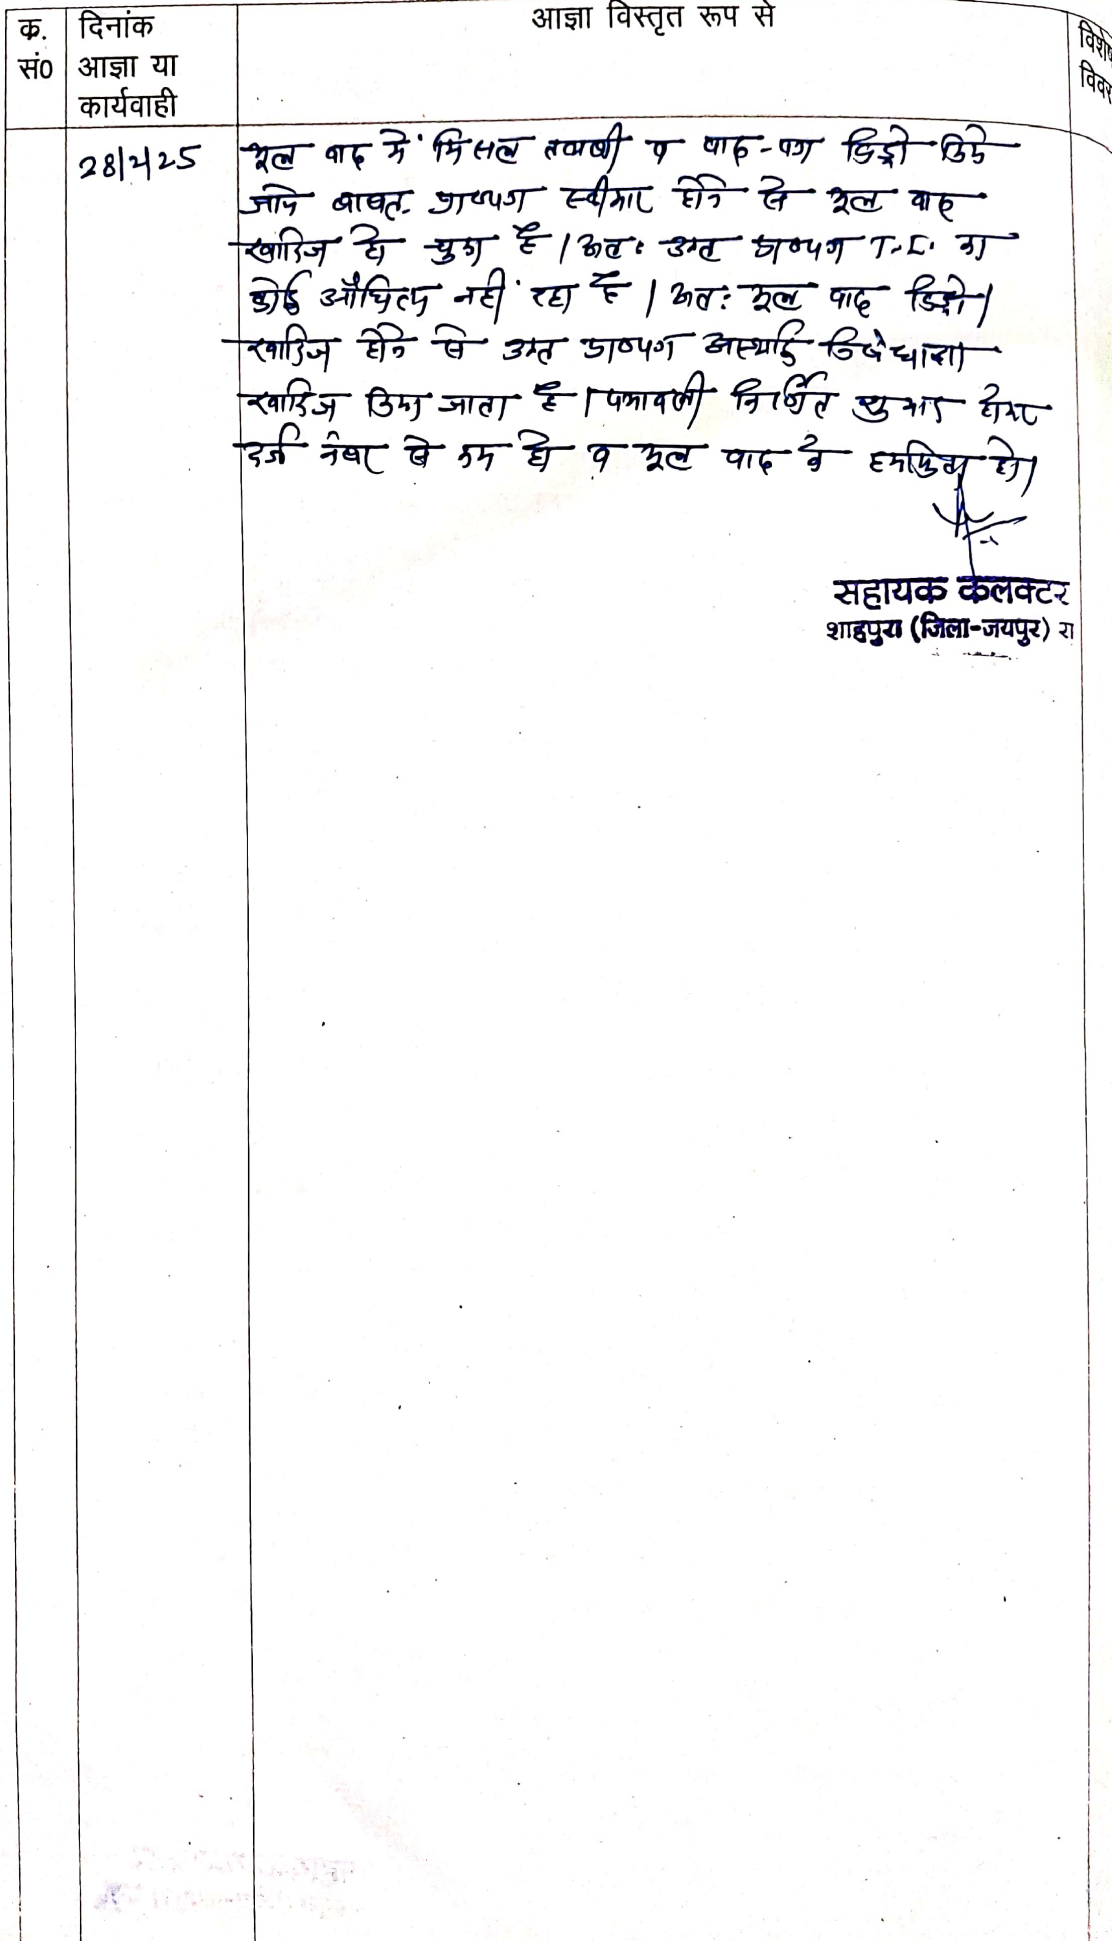 क्र. सं0
दिनांक आज्ञा या कार्यवाही
आज्ञा विस्तृत रूप से
विशेष विवर
28/2/25
मूल वाद में मिसल तलबी व वाद-पत्र डिक्री किये
जाने बाबत प्रा०पत्र स्वीकार होने से मूल वाद
खारिज हो चुका है। अतः उक्त प्रा०पत्र T.I. का
कोई औचित्य नहीं रहा है। अतः मूल वाद डिक्री/
खारिज होने से उक्त प्रा०पत्र अस्थाई निषेधाज्ञा
खारिज किया जाता है। पत्रावली निर्णित शुमार होकर
दर्ज नंबर से कम हो व मूल वाद के हमफिता हो।
सहायक कलक्टर
शाहपुरा (जिला-जयपुर) रा